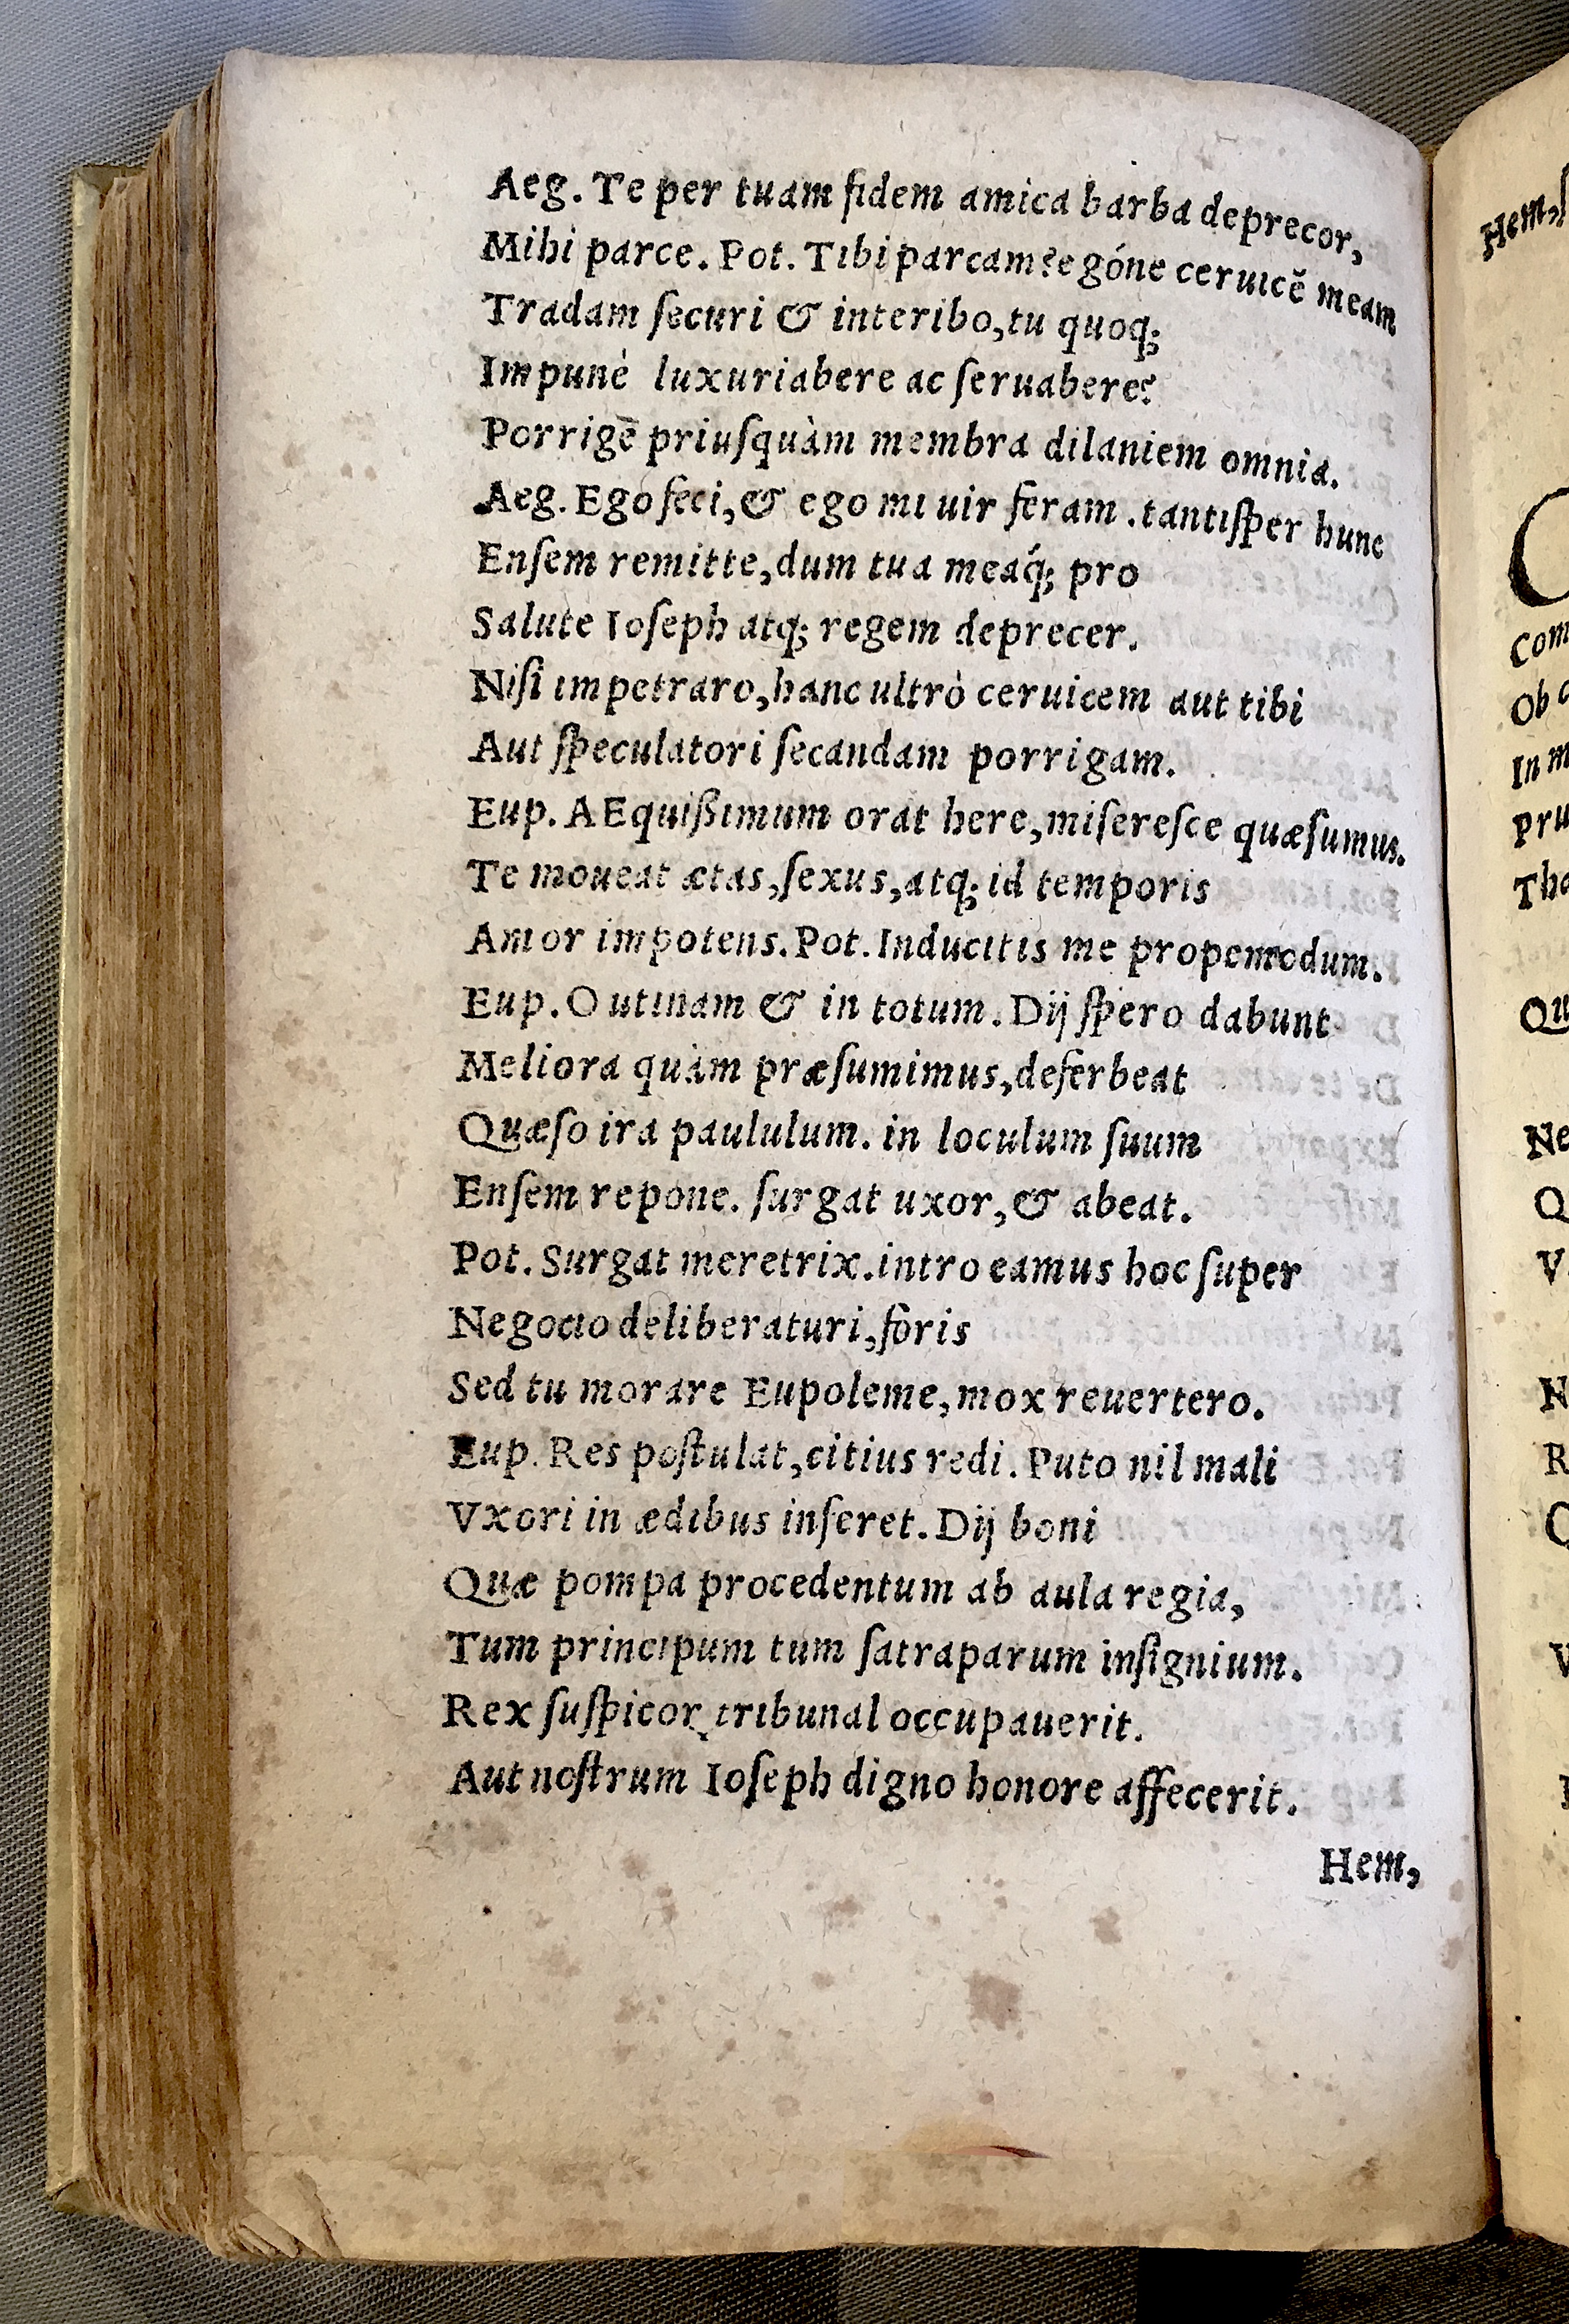 Aeg. Te per tuam fidem amica barba deprecor,
Mihi parce. Pot. Tibi parcam? egóne ceruicẽ meam
Tradam ſecuri & interibo, tu quoq;
Impunè luxuriabere ac ſeruabere?
Porrige priuſquàm membra dilaniem omnia.
Aeg. Ego feci, & ego mi uir feram. tantiſper hunc
Enſem remitte, dum tua meaq́; pro
Salute Ioſeph atq; regem deprecer.
Niſi impetraro, hanc ultrò ceruicem aut tibi
Aut ſpeculatori ſecandam porrigam.
Eup. AEquißimum orat here, miſereſce quæſumus.
Te moueat ætas, ſexus, atq; id temporis
Amor impotens. Pot. Inducitis me propemodum.
Eup. O utinam & in totum. Dij ſpero dabunt
Meliora quàm præſumimus, deferbeat
Quæſo ira paululum. in loculum ſuum
Enſem repone. ſurgat uxor, & abeat.
Pot. Surgat meretrix. intro eamus hoc ſuper
Negocio deliberaturi, foris
Sed tu morare Eupoleme, mox reuertero.
Eup. Res poſtulat, citius redi. Puto nil mali
Vxori in ædibus inferet. Dij boni
Quæ pompa procedentum ab aula regia,
Tum principum tum ſatraparum inſignium.
Rex ſuſpicor tribunal occupauerit.
Aut noſtrum Ioſeph digno honore affecerit.
Hem,
Hem,
Com
Ob
In m
Pru
Tha
Qu
Ne
Q
V
N
R